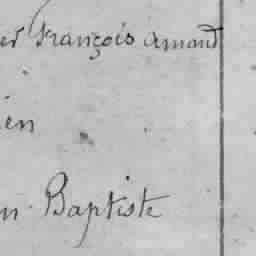 er François Amand
ien
n Baptiste